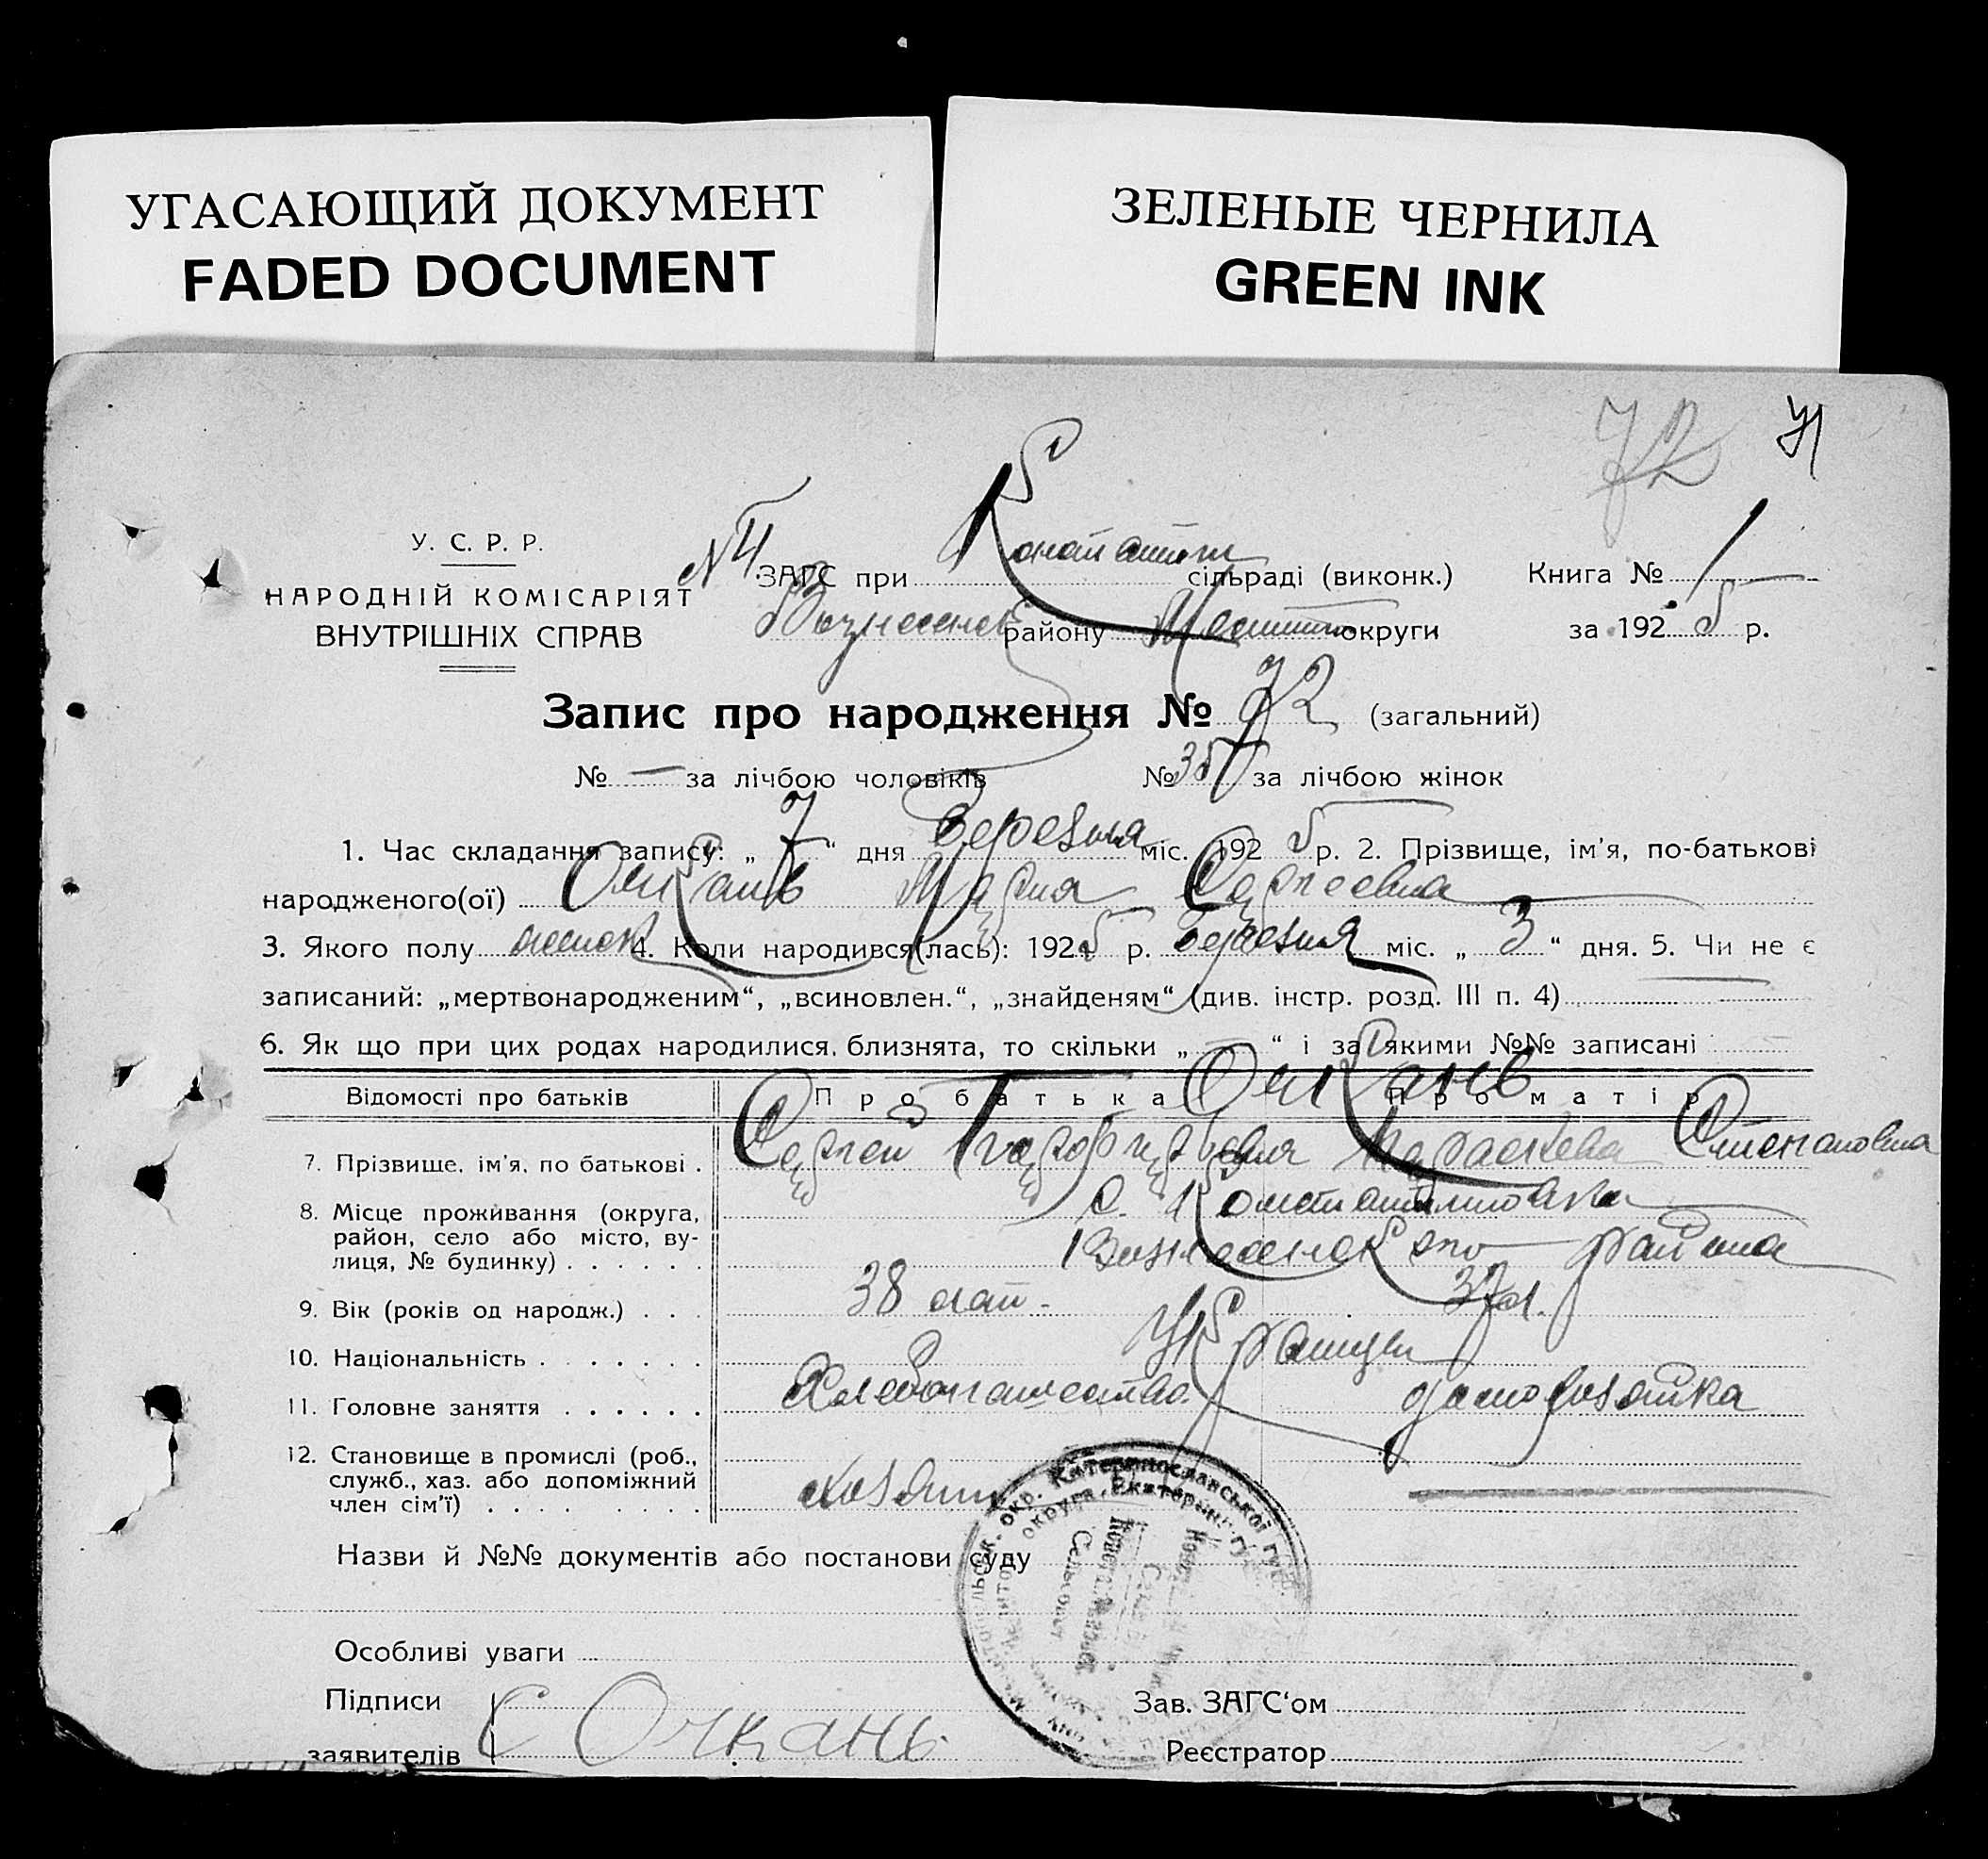 УГАСАЮЩИЙ ДОКУМЕНТ
FADED DOCUMENT
ЗЕЛЕНЫЕ ЧЕРНИЛА
GREEN INK
72 71
У. С. Р. Р.
НАРОДНІЙ КОМІСАРІЯТ
ВНУТРІШНІХ СПРАВ
ЗАГС при Констант сільраді (виконк.) Книга № 1
Вознесенск району округи за 1925 р.
Запис про народження № 72 (загальний)
№ — за лічбою чоловіків № 35 за лічбою жінок
1. Час складання запису: „ 7 “ дня Березня міс. 1925 р. 2. Прізвище, ім'я, по-батькові
народженого(ої) Очкань Мария Сергеевна
3. Якого полу женск 4. Коли народився(лась): 1925 р. Березня міс. „ 3 “ дня. 5. Чи не є
записаний: „мертвонародженим“, „всиновлен.“, „знайденям“ (див. інстр. розд. III п. 4)
6. Як що при цих родах народилися, близнята, то скільки „ — “ і за якими №№ записані
Відомості про батьків Про батька Очкань Про матір
7. Прізвище, ім'я, по батькові . Сергей Параскева Степановна
8. Місце проживання (округа,
район, село або місто, ву-
лиця, № будинку) . . . . . .
с. Константиновка
Вознесенского района
9. Вік (років од народж.) . . . 38 лет 37 л.
10. Національність . . . . . . . Украинцы
11. Головне заняття . . . . . . Хлебопашество домохозяйка
12. Становище в промислі (роб.,
служб., хаз. або допоміжний
член сім'ї) . . . . . . . . . хозяин
Назви й №№ документів або постанови суду
окр. Катеринославської губ.
Сельсовет
Особливі уваги
Підписи
заявителів С Очкань
Зав. ЗАГС'ом
Реєстратор